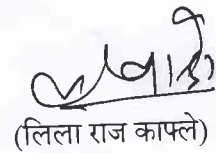 (लिला राज काफ्ले)